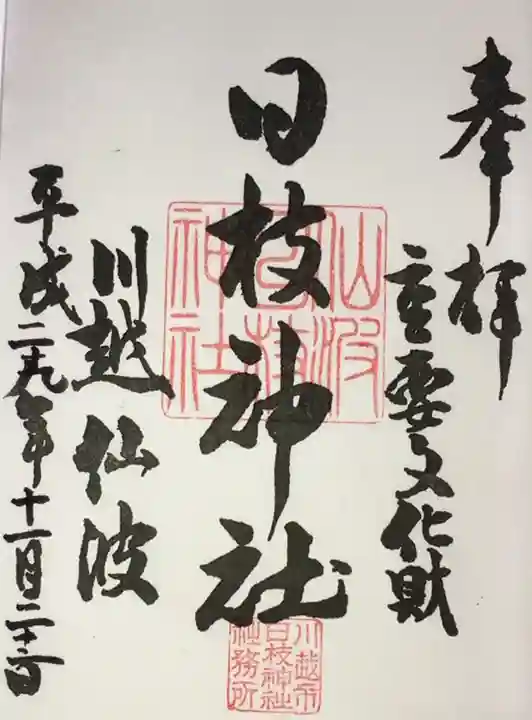 奉拝
重要文化財
日枝神社
川越仙波
平成二十九年十一月二十三日
仙波
日枝
神社
川越市
日枝神社
社務所